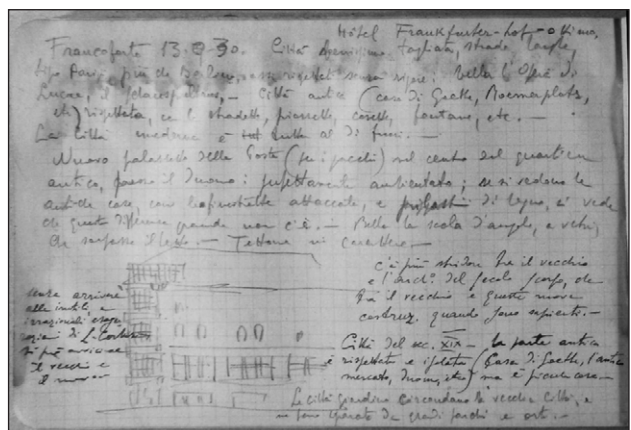 Hôtel Frankfurter-hof - ottimo,
Francoforte 13.8.30. Città modernissima. tagliata, strade larghe,
tipo Parigi, più che Berlino,
Bella l'Opera di
Lucae, il Schauspielhaus, - Città antica (casa di Goethe, Roemerplatz,
etc) rispettata, con stradette, piazzette, casette, fontane, etc. -
La città moderna è tutta al di fuori. -
Nuovo palazzo delle Poste (per i pacchi) nel centro del quartiere
antico, presso il Duomo: perfettamente ambientato; se si vedono le
antiche case, con le finestrelle attaccate, e di legno, si vede
che questa differenza grande non c'è. - Bella la scala d'angolo, a vetri,
che sorpassa il tetto. - Tettoia in
c'è più stridore tra il vecchio
e l'arch. del secolo scorso, che
tra il vecchio e queste nuove
costruz. quando sono sapienti. -
senza arrivare
alle inutili e
irrazionali esagerazioni
di Le Corbusier
si può avvicinare
il vecchio e
il nuovo
Città del sec. XIX - la parte antica
è rispettata e isolata (Casa di Goethe, l'antico
mercato, Duomo, etc) ma è piccola cosa. -
Le città giardino circondano la vecchia città, e
ne sono separate da grandi parchi e orti. -